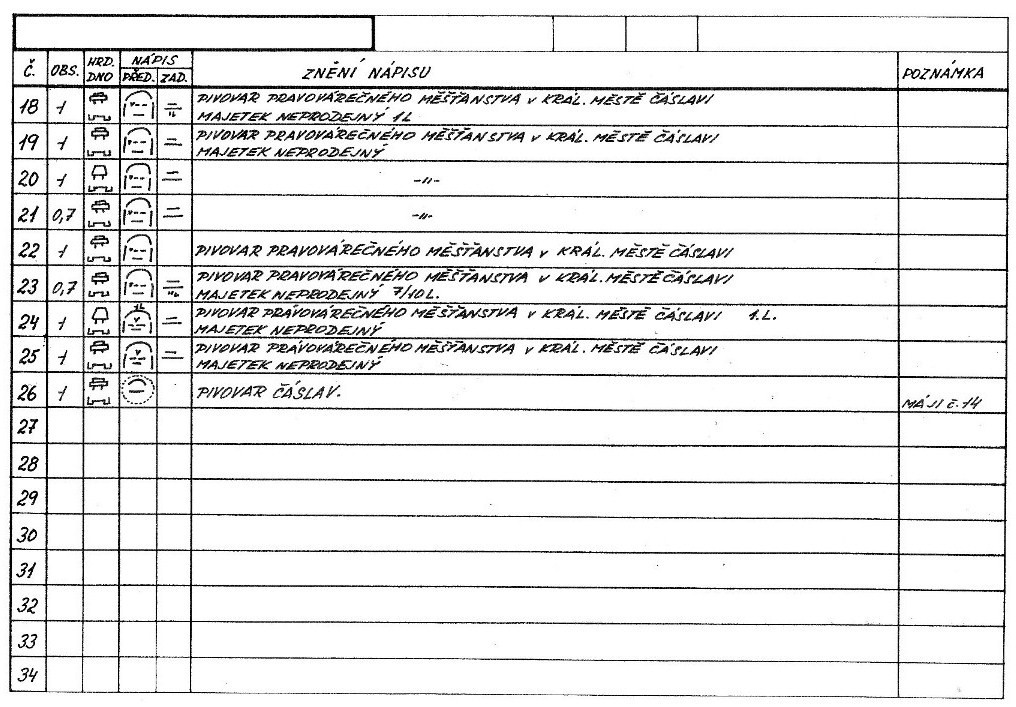 Č. OBS. HRD. DNO NÁPIS PŘED. ZAD. ZNĚNÍ NÁPISU POZNÁMKA
18 1 PIVOVAR PRAVOVÁREČNÉHO MĚŠŤANSTVA V KRÁL. MĚSTĚ ČÁSLAVI
MAJETEK NEPRODEJNÝ 1L
19 1 PIVOVAR PRAVOVÁREČNÉHO MĚŠŤANSTVA V KRÁL. MĚSTĚ ČÁSLAVI
MAJETEK NEPRODEJNÝ
20 1 -"-
21 0,7 -"-
22 1 PIVOVAR PRAVOVÁREČNÉHO MĚŠŤANSTVA V KRÁL. MĚSTĚ ČÁSLAVI
23 0,7 PIVOVAR PRAVOVÁREČNÉHO MĚŠŤANSTVA V KRÁL. MĚSTĚ ČÁSLAVI
MAJETEK NEPRODEJNÝ 7/10 L.
24 1 PIVOVAR PRÁVOVÁREČNÉHO MĚŠŤANSTVA V KRÁL. MĚSTĚ ČÁSLAVI 1.L.
MAJETEK NEPRODEJNÝ
25 1 PIVOVAR PRÁVOVÁREČNÉHO MĚŠŤANSTVA V KRÁL. MĚSTĚ ČÁSLAVI
MAJETEK NEPRODEJNÝ
26 1 PIVOVAR ČÁSLAV. MÁJI č.14
27
28
29
30
31
32
33
34